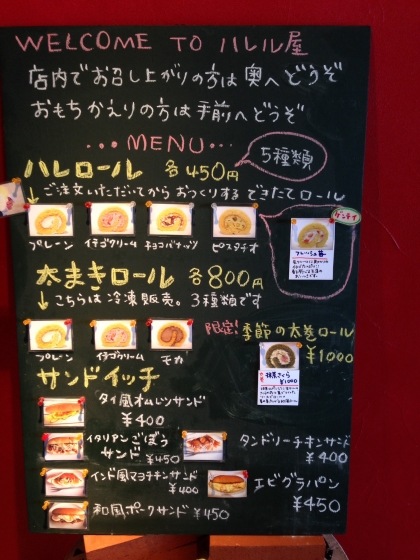 WELCOME TO ハレル屋
店内でお召し上がりの方は奥へどうぞ
おもちかえりの方は手前へどうぞ
...MENU...
ハレロール 各450円
5種類
↓ご注文いただいてから おつくりする できたてロール
プレーン
イチゴクリーム
チョコバナナッツ
ピスタチオ
太まきロール 各800円
↓こちらは冷凍販売。3種類です
プレーン
イチゴクリーム
モカ
限定!季節の大巻ロール
¥1000
抹茶さくら
¥1000
サンドイッチ
タイ風オムレツサンド
¥400
イタリアンごぼう
サンド ¥450
タンドリーチキンサンド
¥400
インド風マヨチキンサンド
¥400
エビグラパン
¥450
和風ポークサンド ¥450